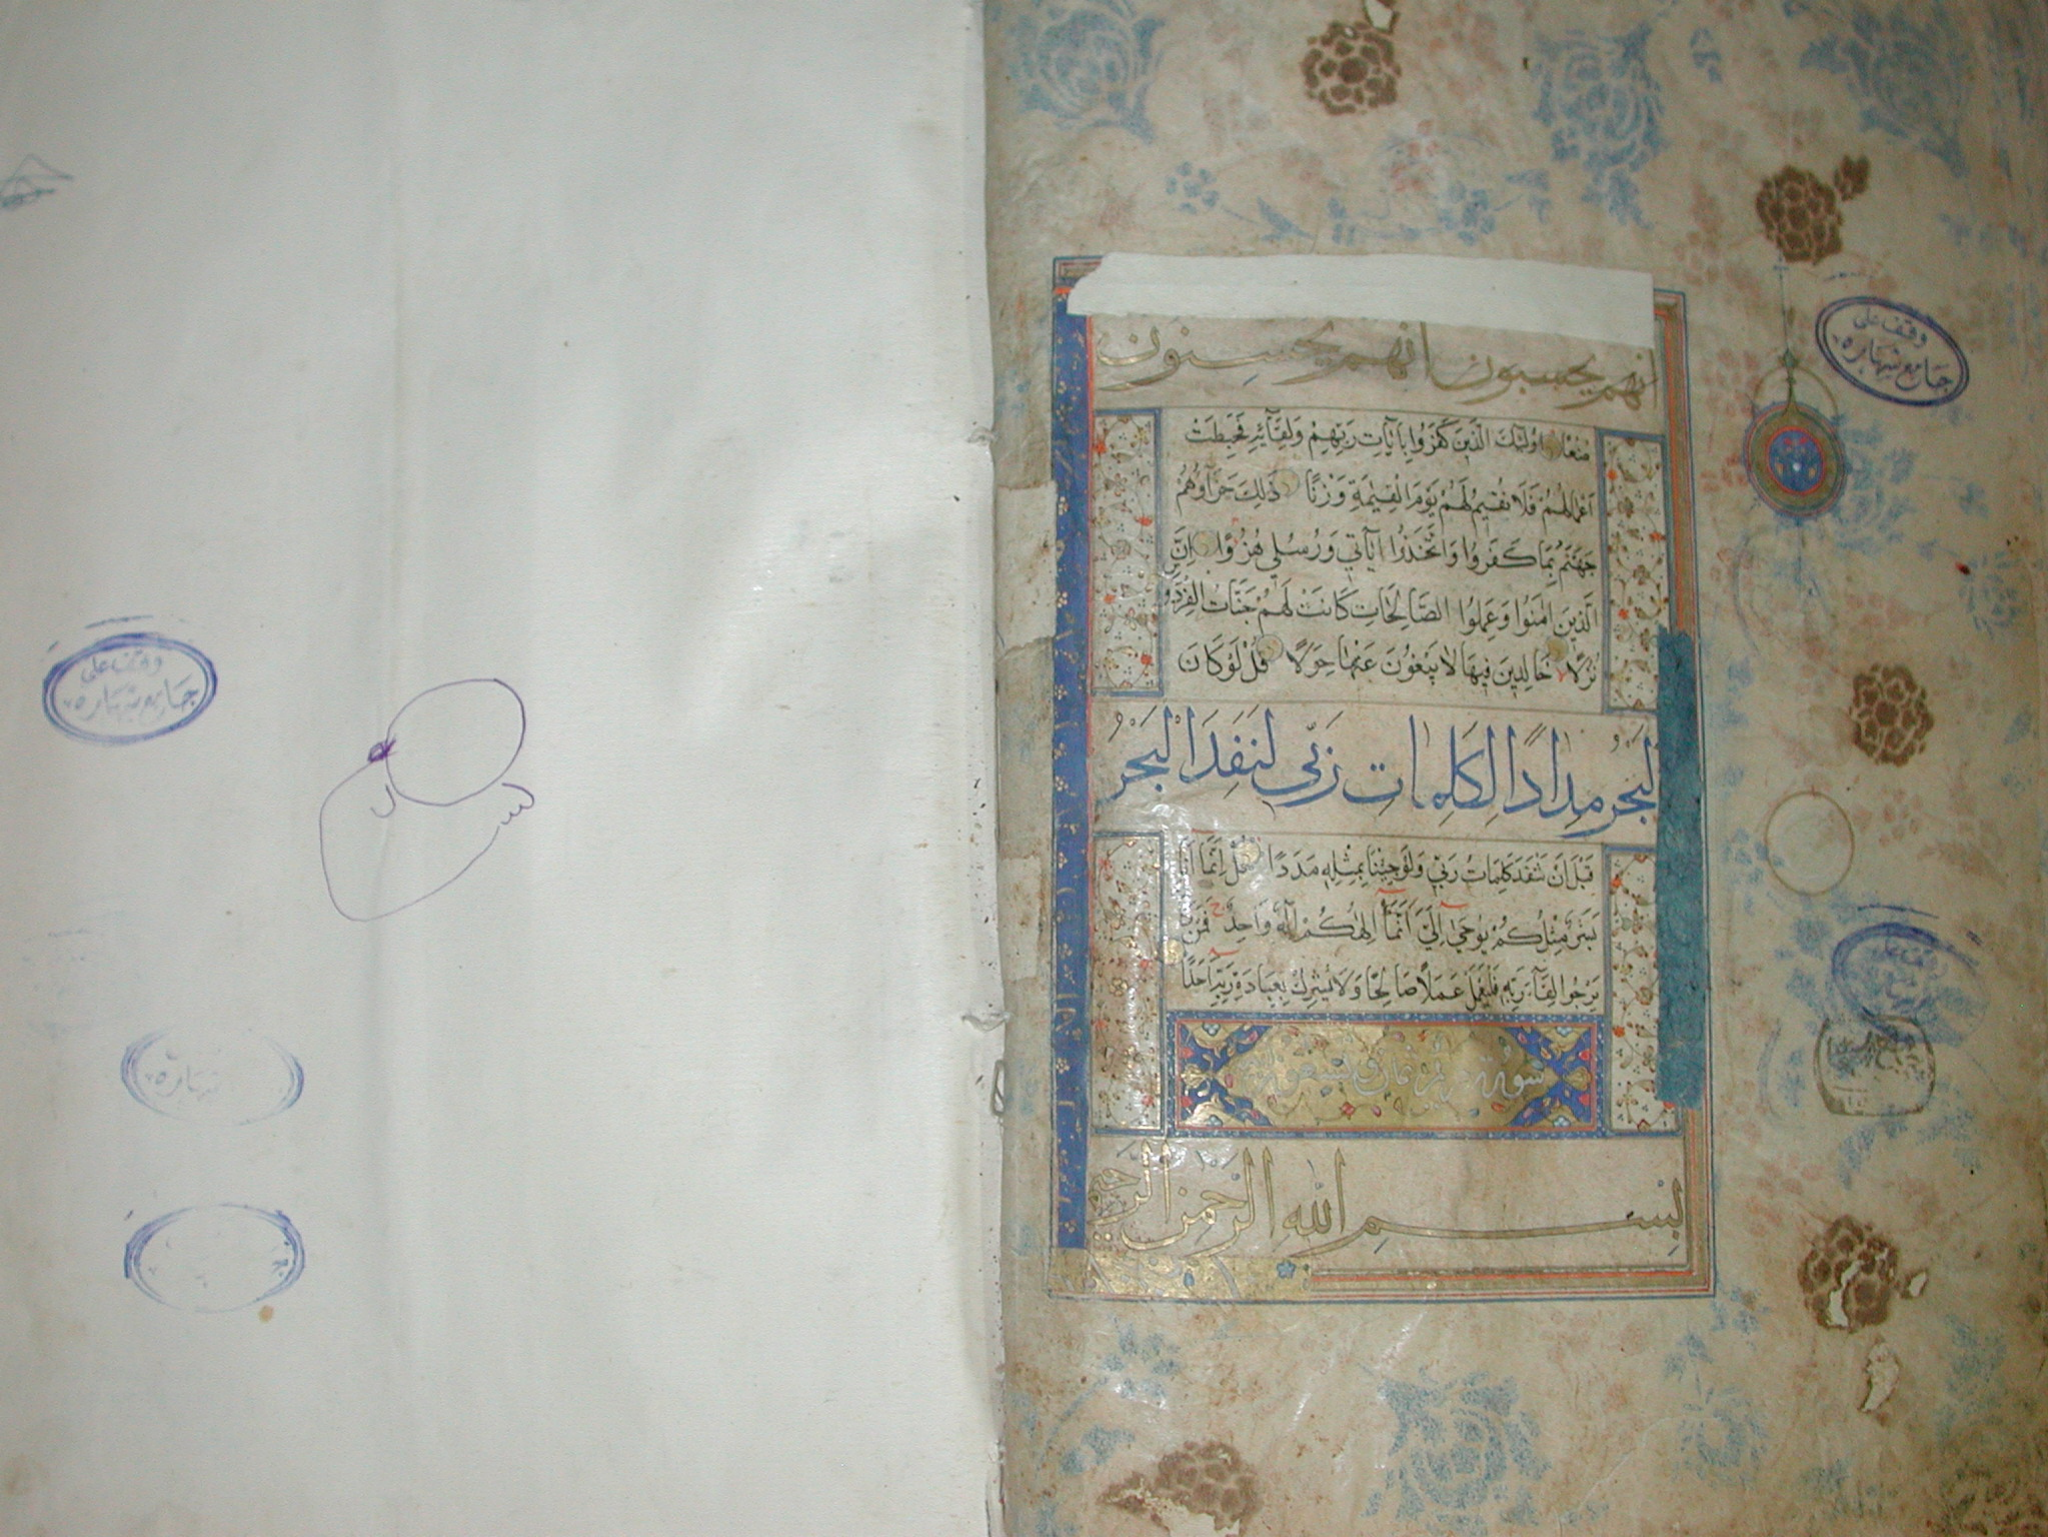 انهم يحسبون انهم يحسنون
صنعا اولئك الذين كفروا بايات ربهم ولقائه فحبطت
اعمالهم فلا نقيم لهم يوم القيمة وزنا ذلك جزاؤهم
جهنم بما كفروا واتخذوا اياتي ورسلي هزوا ان
الذين امنوا وعملوا الصالحات كانت لهم جنات الفردو
نزلا خالدين فيها لا يبغون عنها حولا قل لو كان
البحر مدادا لكلمات ربي لنفد البحر
قبل ان تنفد كلمات ربي ولو جئنا بمثله مددا قل انما انا
بشر مثلكم يوحى الي انما الهكم اله واحد فمن
يرجوا لقاء ربه فليعمل عملا صالحا ولا يشرك بعبادة ربه احدا
سورة مريم ثمان وتسعون
بسم الله الرحمن الرحيم
وقف على
جامع شهاره
وقف على
جامع شهاره
وقف على
شهاره
شهاره